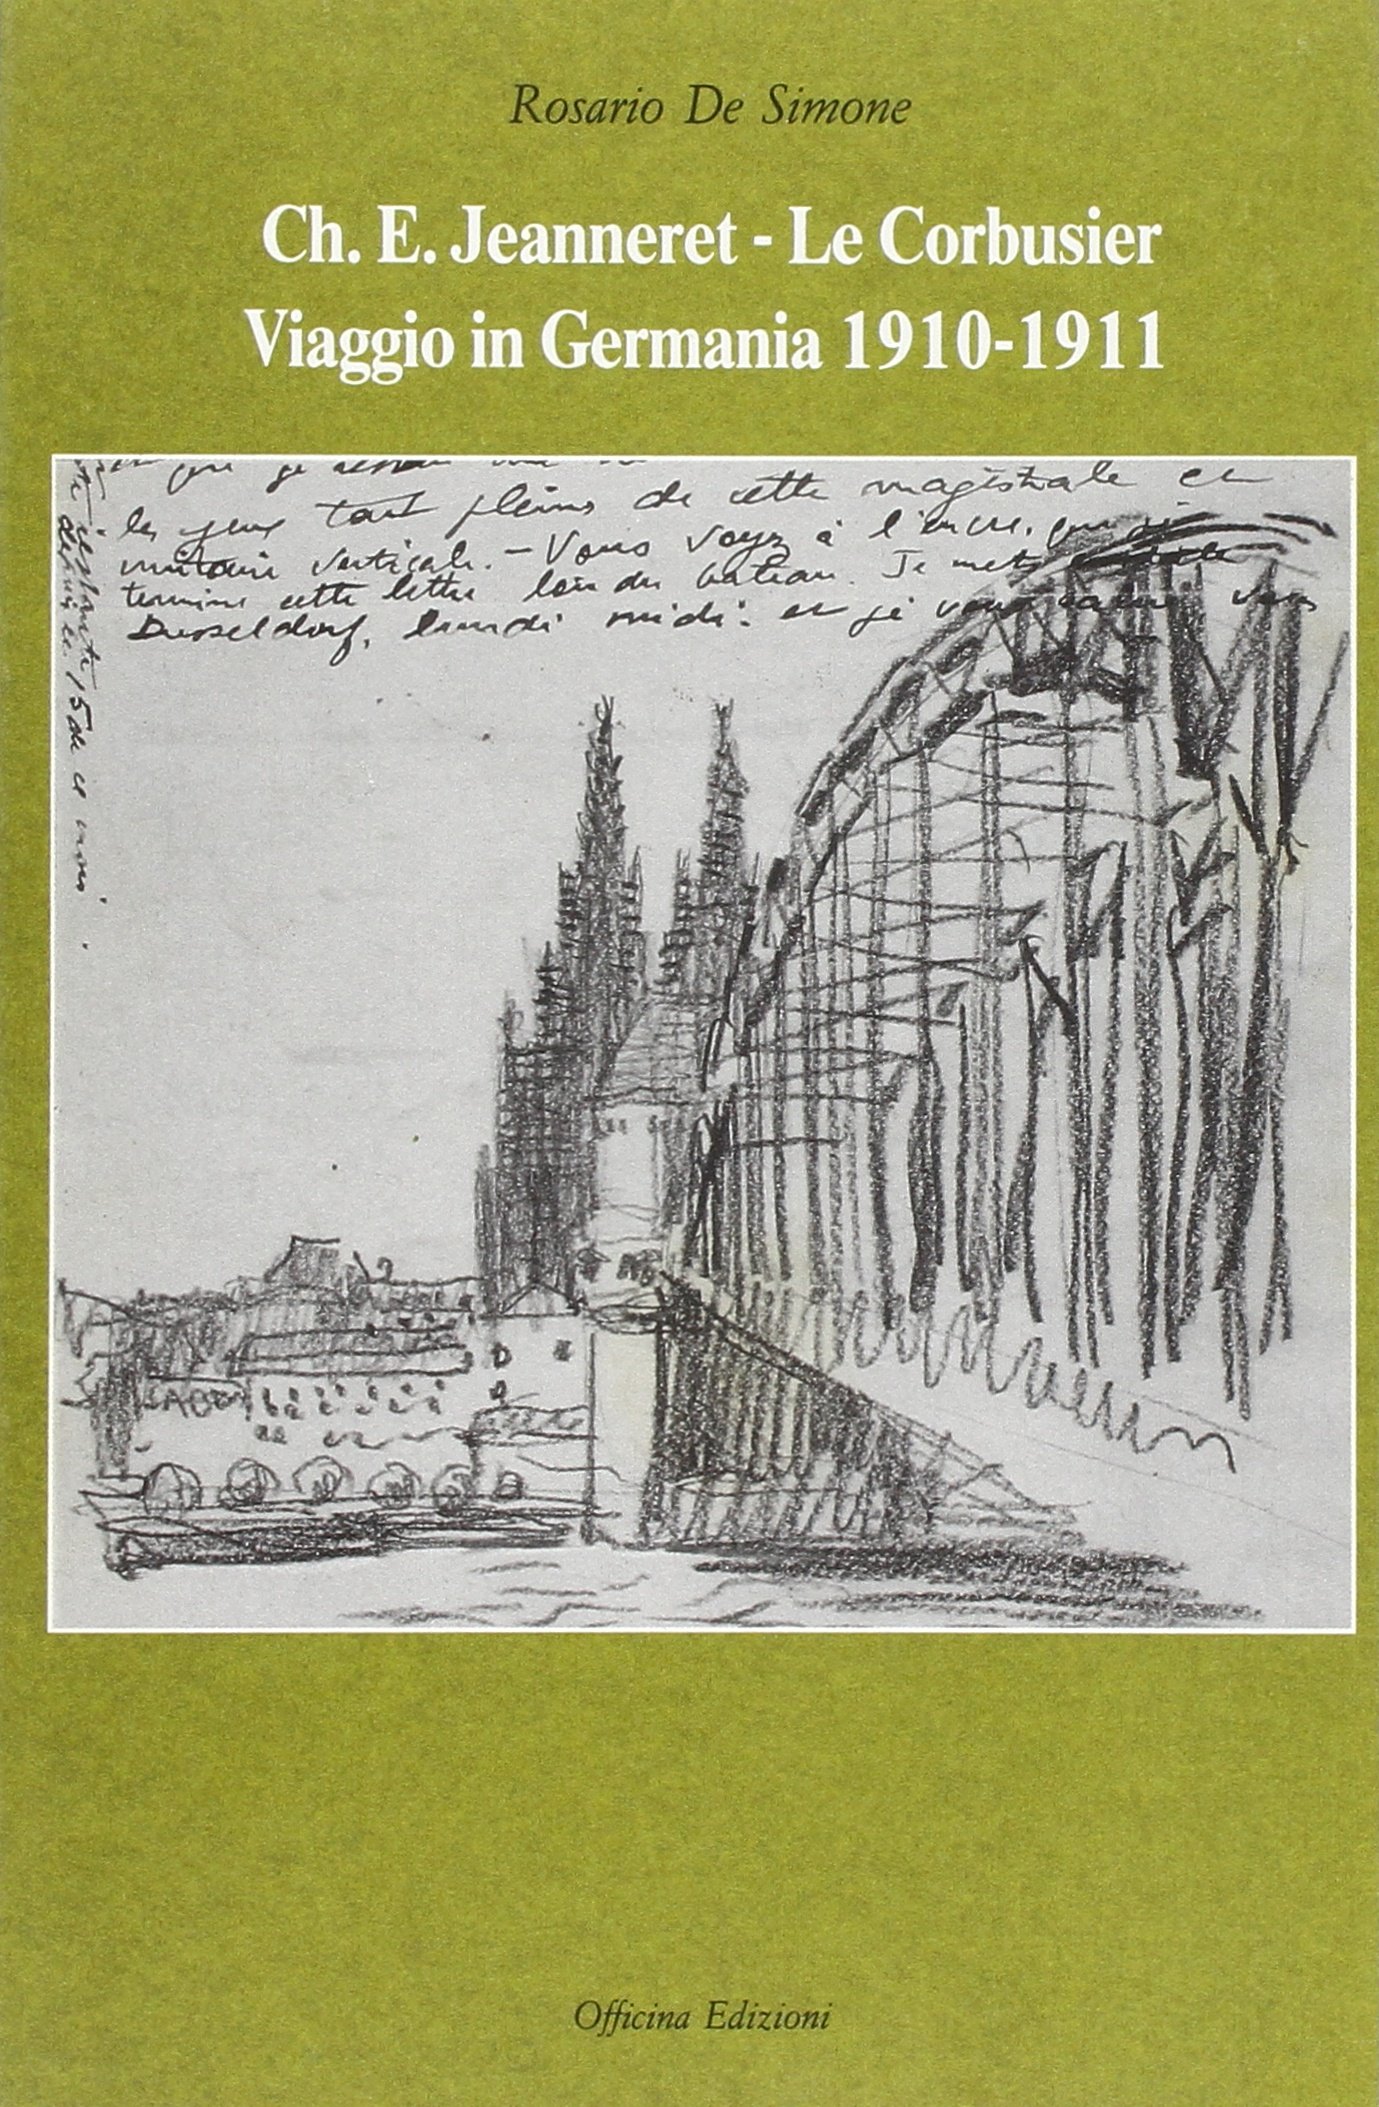 Rosario De Simone
Ch. E. Jeanneret - Le Corbusier
Viaggio in Germania 1910-1911
les yeux tout pleins de cette magistrale et
verticale. - Vous voyez à l'encre, que je
termine cette lettre loin du bateau. Je mets
Dusseldorf, lundi midi. et je vous vous
15 de ce mois
Officina Edizioni